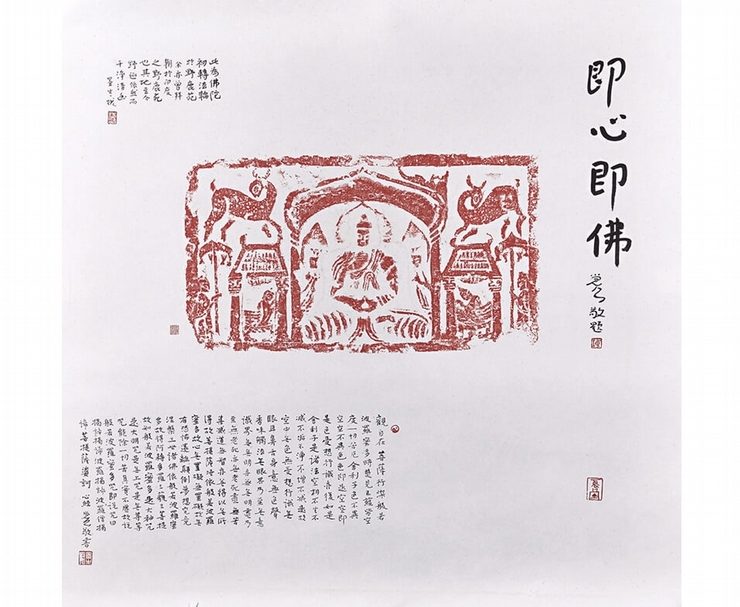 即心即佛
敬題
此為佛陀
初轉法輪
於野鹿苑
余亦曾拜
朝於印度
之野鹿苑
也其地至今
野趣依然而
干淨清幽
觀自在菩薩行深般若
波羅蜜多時照見五蘊皆空
度一切苦厄舍利子色不異
空空不異色色即是空空即
是色受想行識亦復如是
舍利子是諸法空相不生不
滅不垢不淨不增不減是故
空中無色無受想行識無
眼耳鼻舌身意無色聲
香味觸法無眼界乃至無意
識界無無明亦無無明盡乃
至無老死亦無老死盡無苦
集滅道無智亦無得以無所
得故菩提薩埵依般若波羅
蜜多故心無罣礙無罣礙故無
有恐怖遠離顛倒夢想究竟
涅槃三世諸佛依般若波羅蜜
多故得阿耨多羅三藐三菩提
故知般若波羅蜜多是大神咒
是大明咒是無上咒是無等等
咒能除一切苦真實不虛故說
般若波羅蜜多咒即說咒曰
揭諦揭諦波羅揭諦波羅僧揭
諦菩提薩婆訶 心經 敬書